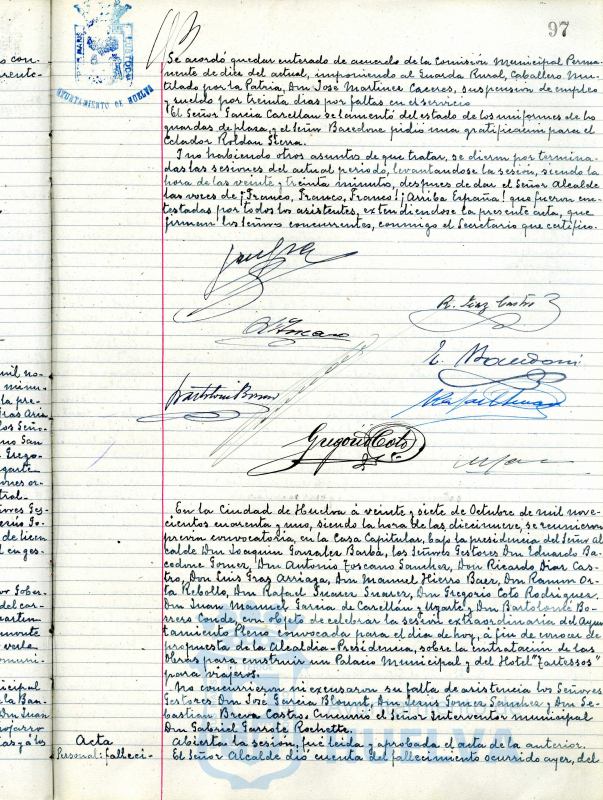 97
AYUNTAMIENTO DE HUELVA
Se acordó quedar enterado de acuerdo de la Comisión Municipal Perma-
nente de diez del actual, imponiendo al Guarda Rural, Caballero Mu-
tilado por la Patria, Don José Martínez Caceres, suspension de empleo
y sueldo por treinta dias por faltas en el servicio
El Señor Garcia Carellan se lamentó del estado de los uniformes de los
guardas de plaza, y el Señor Bacedone pidio una gratificacion para el
Celador Roldan Sierra.
I no habiendo otros asuntos de que tratar, se dieron por termina-
das las sesiones del actual periodo, levantandose la sesión, siendo la
hora de las veinte y treinta minutos, despues de dar el Señor Alcalde
las voces de ¡Franco, Franco, Franco! ¡Arriba España! que fueron con-
testadas por todos los asistentes, extendiendose la presente acta, que
firman los Señores concurrentes, conmigo el Secretario que certifico.
R. Diaz Castro
Gregorio Coto
En la Ciudad de Huelva á veinte y siete de Octubre de mil nove-
cientos cuarenta y uno, siendo la hora de las diecinueve, se reunieron
previa convocatoria, en la Casa Capitular, bajo la presidencia del Señor Al-
calde Don Joaquin Gonzalez Barba, los Señores Gestores Don Eduardo Ba-
cedone Gomez, Don Antonio Toscano Sanchez, Don Ricardo Diaz Cas-
tro, Don Luis Gras Arriaga, Don Manuel Hierro Baez, Don Ramon Or-
ta Rebollo, Don Rafael Suarez Suarez, Don Gregorio Coto Rodriguez,
Don Juan Manuel Garcia de Carellán y Ugarte y Don Bartolomé Bo-
rrero Conde, con objeto de celebrar la sesión extraordinaria del Ayun-
tamiento Pleno convocada para el dia de hoy, á fin de conocer de
propuesta de la Alcaldia-Presidencia, sobre contratación de las
Obras para construir un Palacio Municipal y del Hotel "Tartessos"
para viajeros.
No concurrieron ni excusaron su falta de asistencia los Señores
Gestores Don José Garcia Blount, Don Jesus Gomez Sanchez y Don Se-
bastian Breva Castro. Concurrió el Señor Interventor municipal
Don Gabriel Garrote Rochette.
Acta
Abierta la sesión, fué leida y aprobada el acta de la anterior.
Personal: falleci-
El Señor Alcalde dió cuenta del fallecimiento ocurrido ayer, del
HUELVA